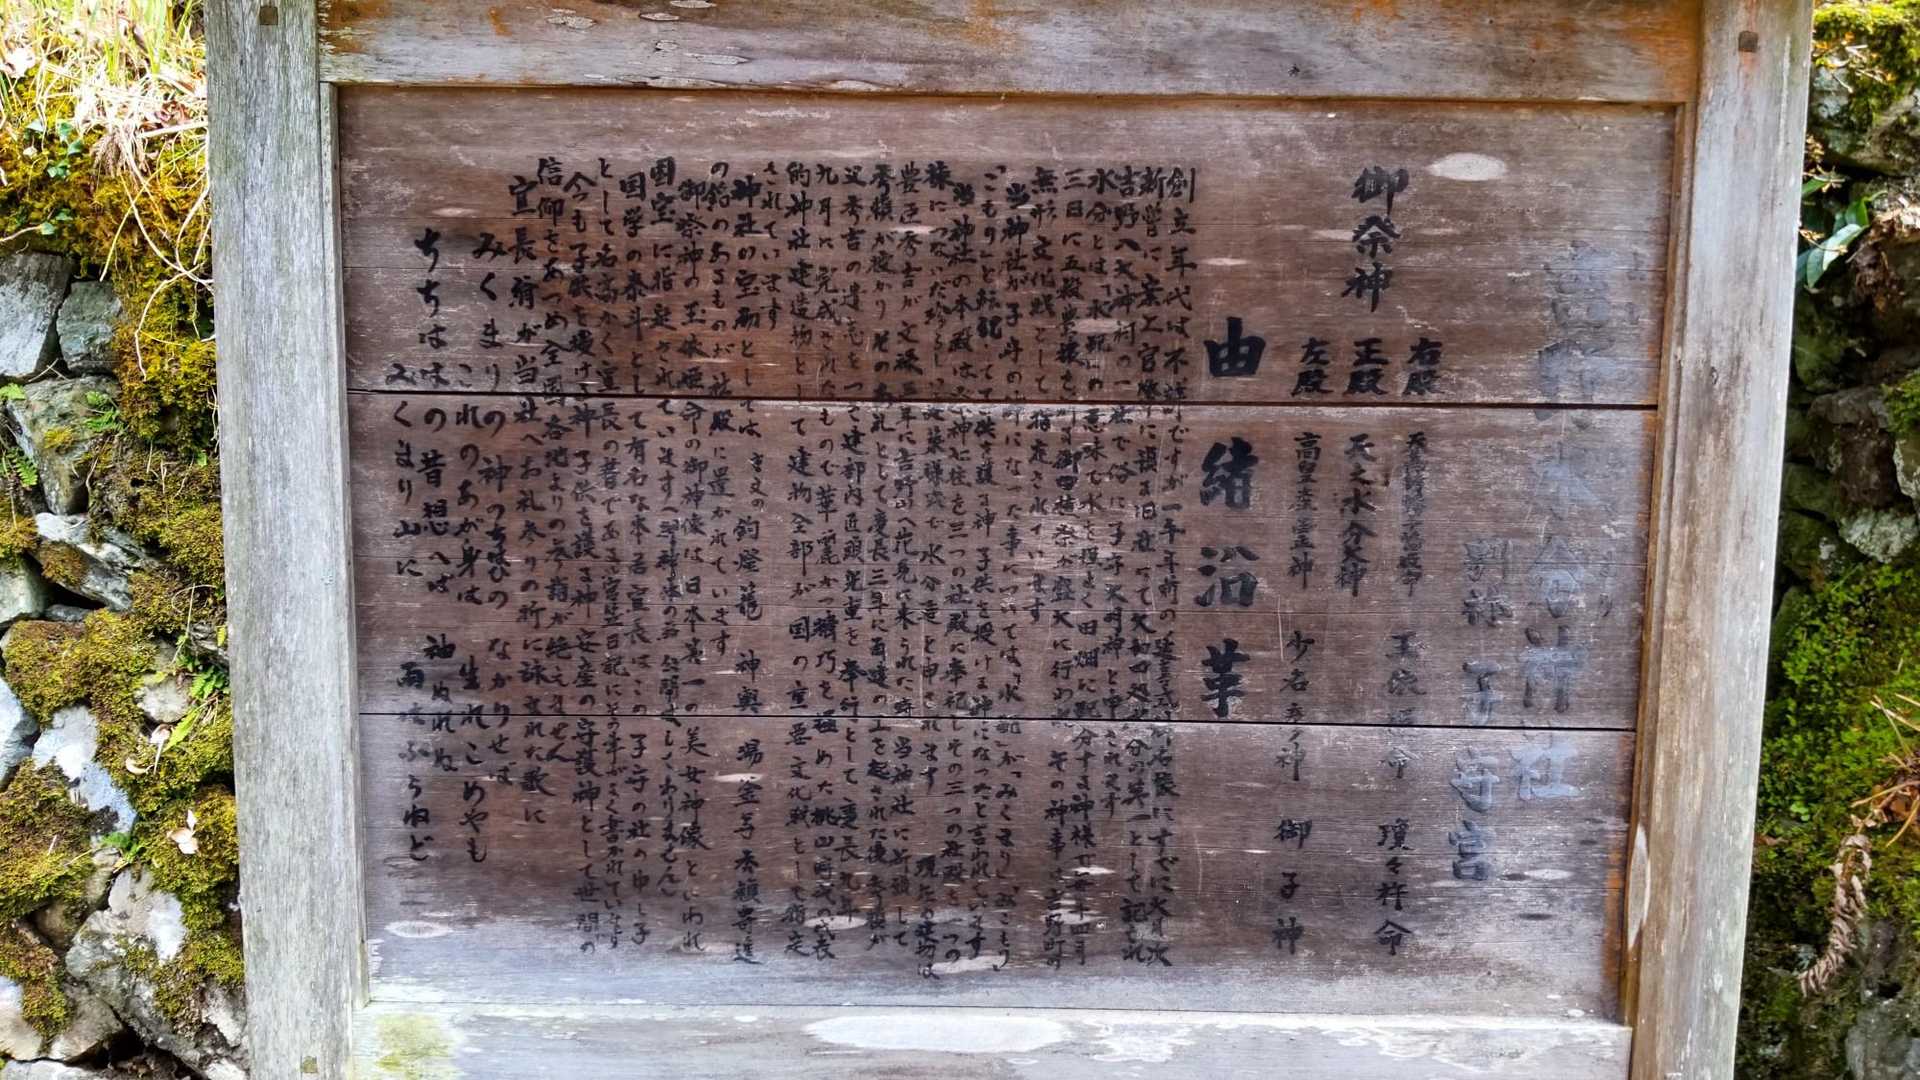 吉野水分神社
別称 子守宮
御祭神
右殿 天萬栲幡千幡姫命 玉依姫命 瓊々杵命
正殿 天之水分大神
左殿 高皇産霊神 少名彦神 御子神
由緒沿革
創立年代は不詳ですが一千年前の延喜式神名帳にすでに大月次
新嘗に案上官幣に預る旧社にて大和四処水分の第一として記され
吉野八大神祠の一社で俗に子守大明神と申されます
水分とは「水配り」の意味で水を程よく田畑に配分する神様で毎年四月
三日に五穀豊穣を祈る御田植祭が盛大に行われ その神事は吉野町
無形文化財として指定されています
当神社が子守の神になった事については「水配」が「みくまり」「みこもり」
「こもり」と転訛して子供を護る神 子供を授ける神になったと言われています
当神社の本殿は祭神に柱を三つの社殿に奉祀しその三つの社殿を一つの
棟につないだ珍らしい建築様式で水分造と申されます 現在の建物は
豊臣秀吉が文禄三年に吉野山へ花見に来られた時 当神社に祈願して
秀頼が授かりそのお礼として慶長三年に再建の工を起された後秀頼が
父秀吉の遺志をつぎ建部内匠頭光重を奉行として慶長九年
九月に完成されたもので華麗かつ精巧を極めた桃山時代の代表
的神社建造物として建物全部が国の重要文化財として指定
されています
神社の宝物としては 銘文の 釣燈籠 神輿 湯釜等秀頼寄進
の銘のあるものが社殿に置かれています
御祭神の玉依姫命の御神像は日本第一の美女神像といわれ
国宝に指定されています(御神体の為公開はしておりません)
国学の泰斗として有名な本居宣長はこの子守の社の申し子
として名高かく宣長の書である菅笠日記にその事がよく書かれています
今も子供を授ける神 子供を護る神 安産の守護神として世間の
信仰をあつめ全国各地よりの参詣が絶えません
宣長翁が当社へお礼参りの折に詠まれた歌に
みくまりの神のちはひの なかりせば
これのあが身は 生れこめやも
ちちははの昔想へば 袖ぬれぬ
みくまり山に 雨はふらねど